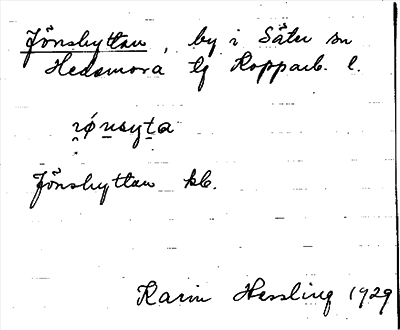 Jönshyttan, by i Säter sn
Hedemora tg Kopparb. l.
Jönshyttan kb.
Karin Hessling 1929